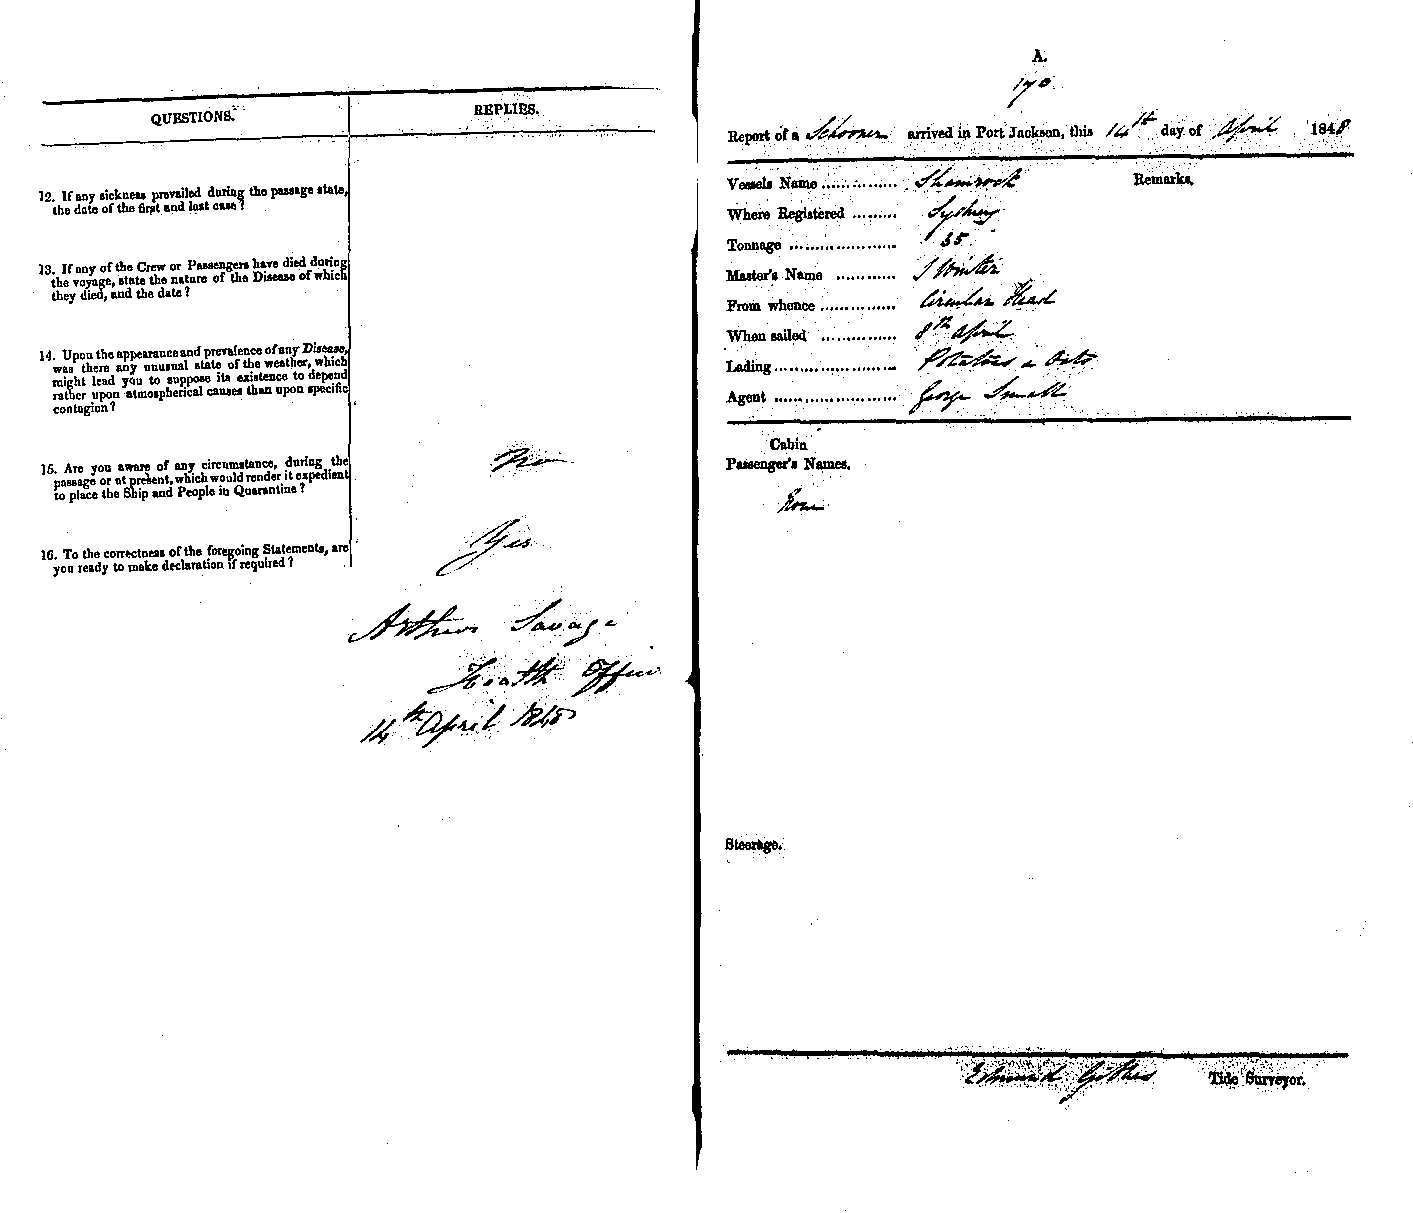 QUESTIONS.
REPLIES.
12. If any sickness prevailed during the passage state,
the date of the first and last case?
13. If any of the Crew or Passengers have died during
the voyage, state the nature of the Disease of which
they died, and the date?
14. Upon the appearance and prevalence of any Disease,
was there any unusual state of the weather, which
might lead you to suppose its existence to depend
rather upon atmospherical causes than upon specific
contagion?
15. Are you aware of any circumstance, during the
passage or at present, which would render it expedient
to place the Ship and People in Quarantine?
No
16. To the correctness of the foregoing Statements, are
you ready to make declaration if required?
Yes
Arthur Savage
Health Officer
14th April 1848
A.
170
Report of a Schooner arrived in Port Jackson, this 14th day of April 1848
Vessels Name Shamrock
Remarks.
Where Registered Sydney
Tonnage 35
Master's Name J Winter
From whence Circular Head
When sailed 8th April
Lading Potatoes & Oats
Agent George Smith
Cabin
Passenger's Names.
None
Steerage.
Edmund Tide Surveyor.